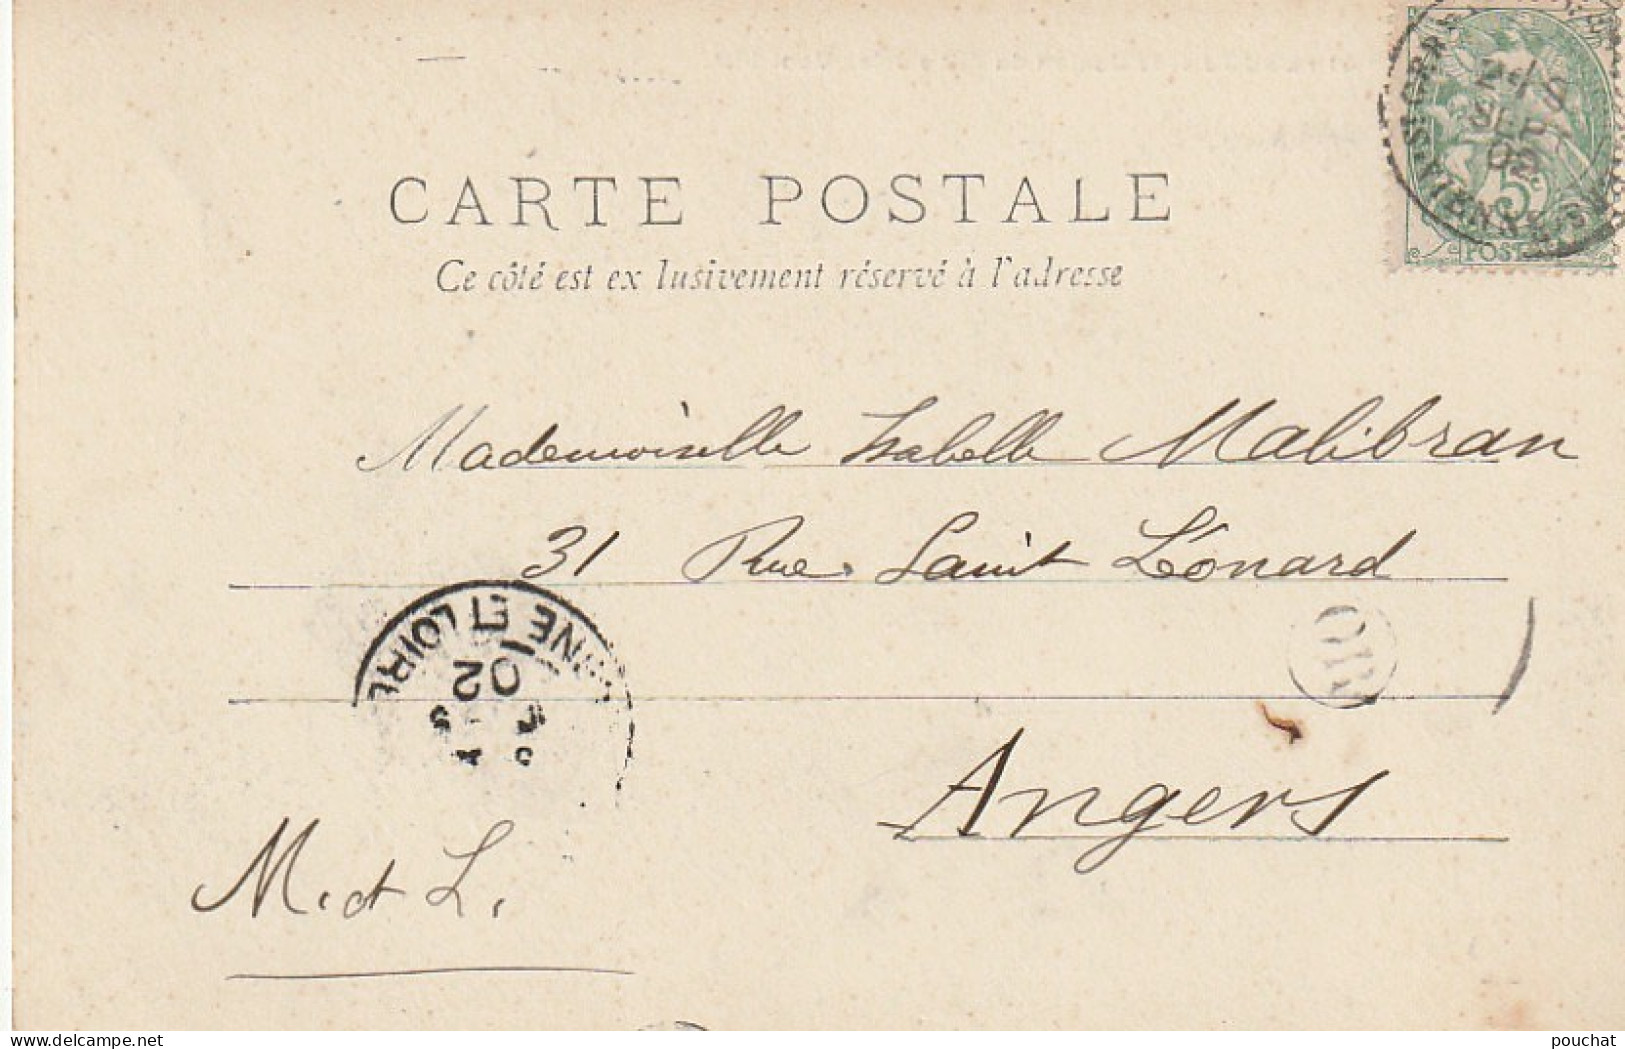 CARTE POSTALE
Ce côté est ex lusivement réservé à l'adresse
SEPT
02
5c
POSTES
Mademoiselle Isabelle Malibran
31 Rue Saint Léonard
Angers
M. et L.
INE ET LOIRE
02
OR
www.delcampe.net
pouchat